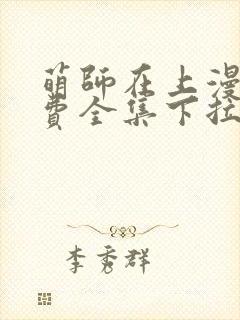 萌師在上漫
費全集下拉
李秀群